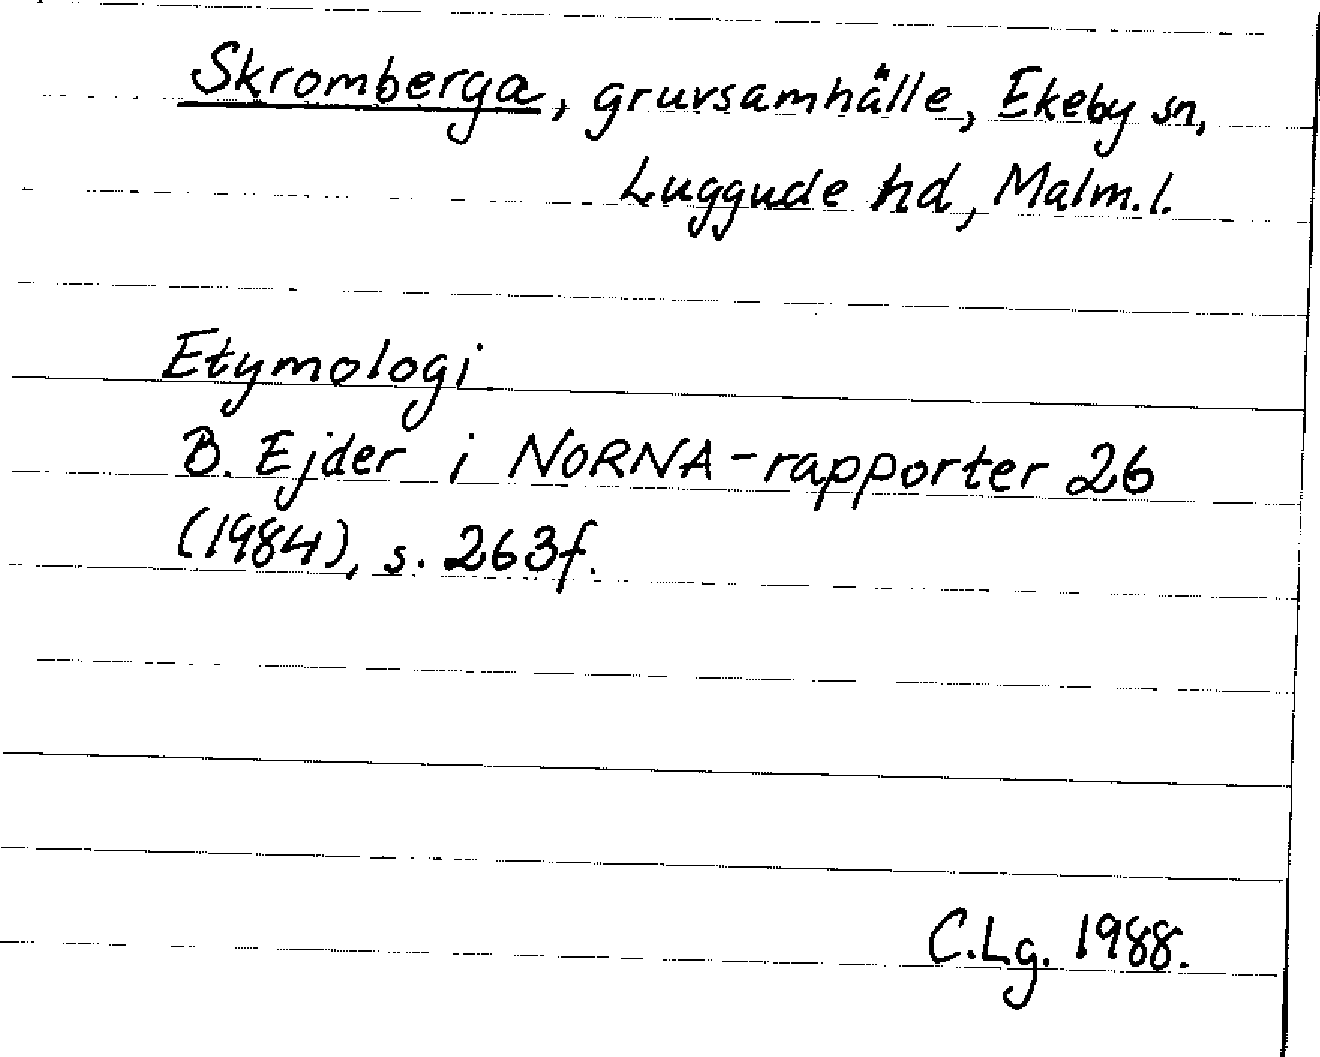 Skromberga, gruvsamhälle, Ekeby sn,
Luggude hd, Malm. l.
Etymologi
B. Ejder i NORNA-rapporter 26
(1984), s. 263f.
C.Lg. 1988.